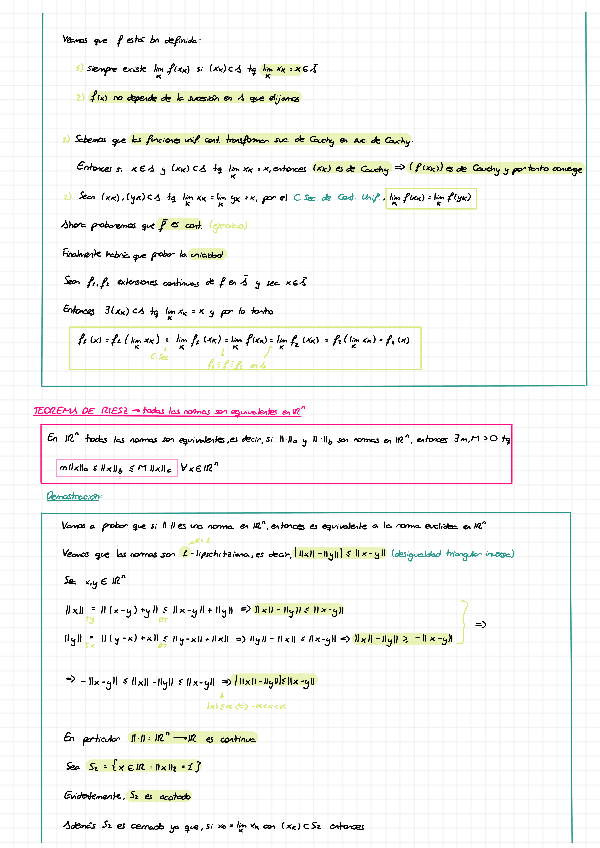 Veamos que f̄ está bn definida:
1) Siempre existe lim_K f(x_K) si (x_K)⊂A tq lim_K x_K = x ∈ Ā
2) f̄(x) no depende de la sucesión en A que elijamos
1) Sabemos que las funciones unif cont. transforman suc. de Cauchy en suc de Cauchy.
Entonces si x∈Ā y (x_K)⊂A tq lim_K x_K = x, entonces (x_K) es de Cauchy ⇒ (f(x_K)) es de Cauchy y por tanto converge
2) Sean (x_K), (y_K)⊂A tq lim_K x_K = lim_K y_K = x, por el C. Sec. de Cont. Unif., lim_K f(x_K) = lim_K f(y_K)
Ahora probaremos que f̄ es cont. (ejercicio)
Finalmente habría que probar la unicidad
Sean f₁, f₂ extensiones continuas de f en Ā y sea x∈Ā
Entonces ∃(x_K)⊂A tq lim_K x_K = x y por lo tanto
f₁(x) = f₁(lim_K x_K) = lim_K f₁(x_K) = lim_K f(x_K) = lim_K f₂(x_K) = f₂(lim_K x_K) = f₂(x)
C.Sec
f₁ = f = f₂ en A
TEOREMA DE RIESZ → todas las normas son equivalentes en ℝⁿ
En ℝⁿ todas las normas son equivalentes, es decir, si ‖·‖_a y ‖·‖_b son normas en ℝⁿ, entonces ∃ m, M > 0 tq
m‖x‖_a ≤ ‖x‖_b ≤ M‖x‖_a ∀x∈ℝⁿ
Demostración:
Vamos a probar que si ‖·‖ es una norma en ℝⁿ, entonces es equivalente a la norma euclídea en ℝⁿ
K=1
Veamos que las normas son 1-lipschitziana, es decir, |‖x‖-‖y‖| ≤ ‖x-y‖ (desigualdad triangular inversa)
Sea x,y ∈ ℝⁿ
‖x‖ = ‖(x-y)+y‖ ≤ ‖x-y‖+‖y‖ ⇒ ‖x‖-‖y‖ ≤ ‖x-y‖
±y DT
‖y‖ = ‖(y-x)+x‖ ≤ ‖y-x‖+‖x‖ ⇒ ‖y‖-‖x‖ ≤ ‖x-y‖ ⇒ ‖x‖-‖y‖ ≥ -‖x-y‖ ⇒
±x DT
⇒ -‖x-y‖ ≤ ‖x‖-‖y‖ ≤ ‖x-y‖ ⇒ |‖x‖-‖y‖| ≤ ‖x-y‖
En particular ‖·‖: ℝⁿ → ℝ es continua
Sea S₂ = {x∈ℝ : ‖x‖₂ = 1}
Evidentemente, S₂ es acotado
Además S₂ es cerrado ya que, si x₀ = lim_K x_K con (x_K)⊂S₂ entonces